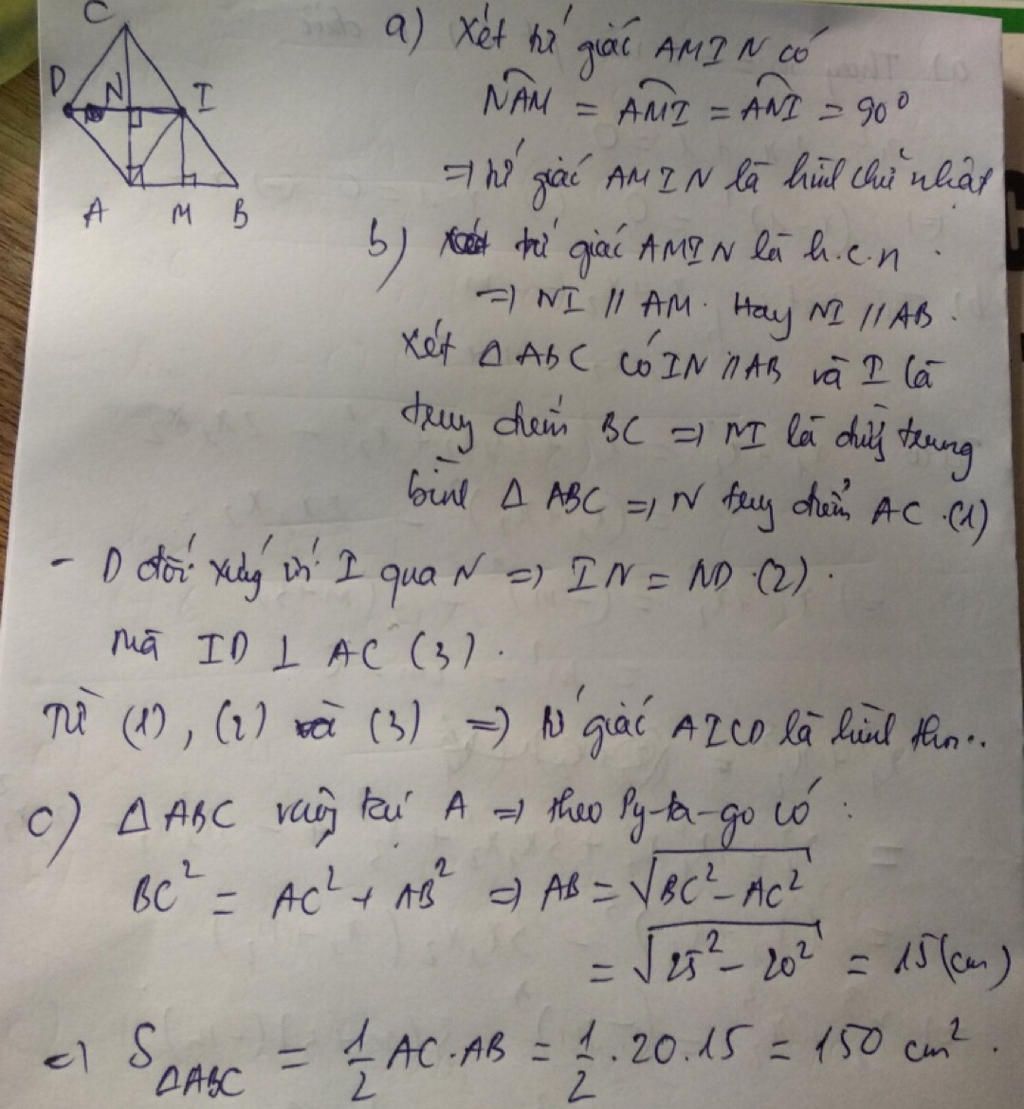 C
D N I
A M B
a) Xét tứ giác AMIN có
NAM = AMI = ANI = 90°
=> tứ giác AMIN là hình chữ nhật
b) tứ giác AMIN là h.c.n
=> NI // AM. Hay NI // AB.
Xét Δ ABC có IN // AB và I là
trung điểm BC => NI là đường trung
bình Δ ABC => N trung điểm AC.(1)
- D đối xứng với I qua N => IN = ND.(2).
mà ID ⊥ AC (3).
Từ (1), (2) và (3) => tứ giác AICD là hình thoi..
c) Δ ABC vuông tại A => theo Py-ta-go có :
BC² = AC² + AB² => AB = √(BC² - AC²)
= √(25² - 20²) = 15(cm)
=> S ΔABC = 1/2 AC.AB = 1/2 . 20.15 = 150 cm².